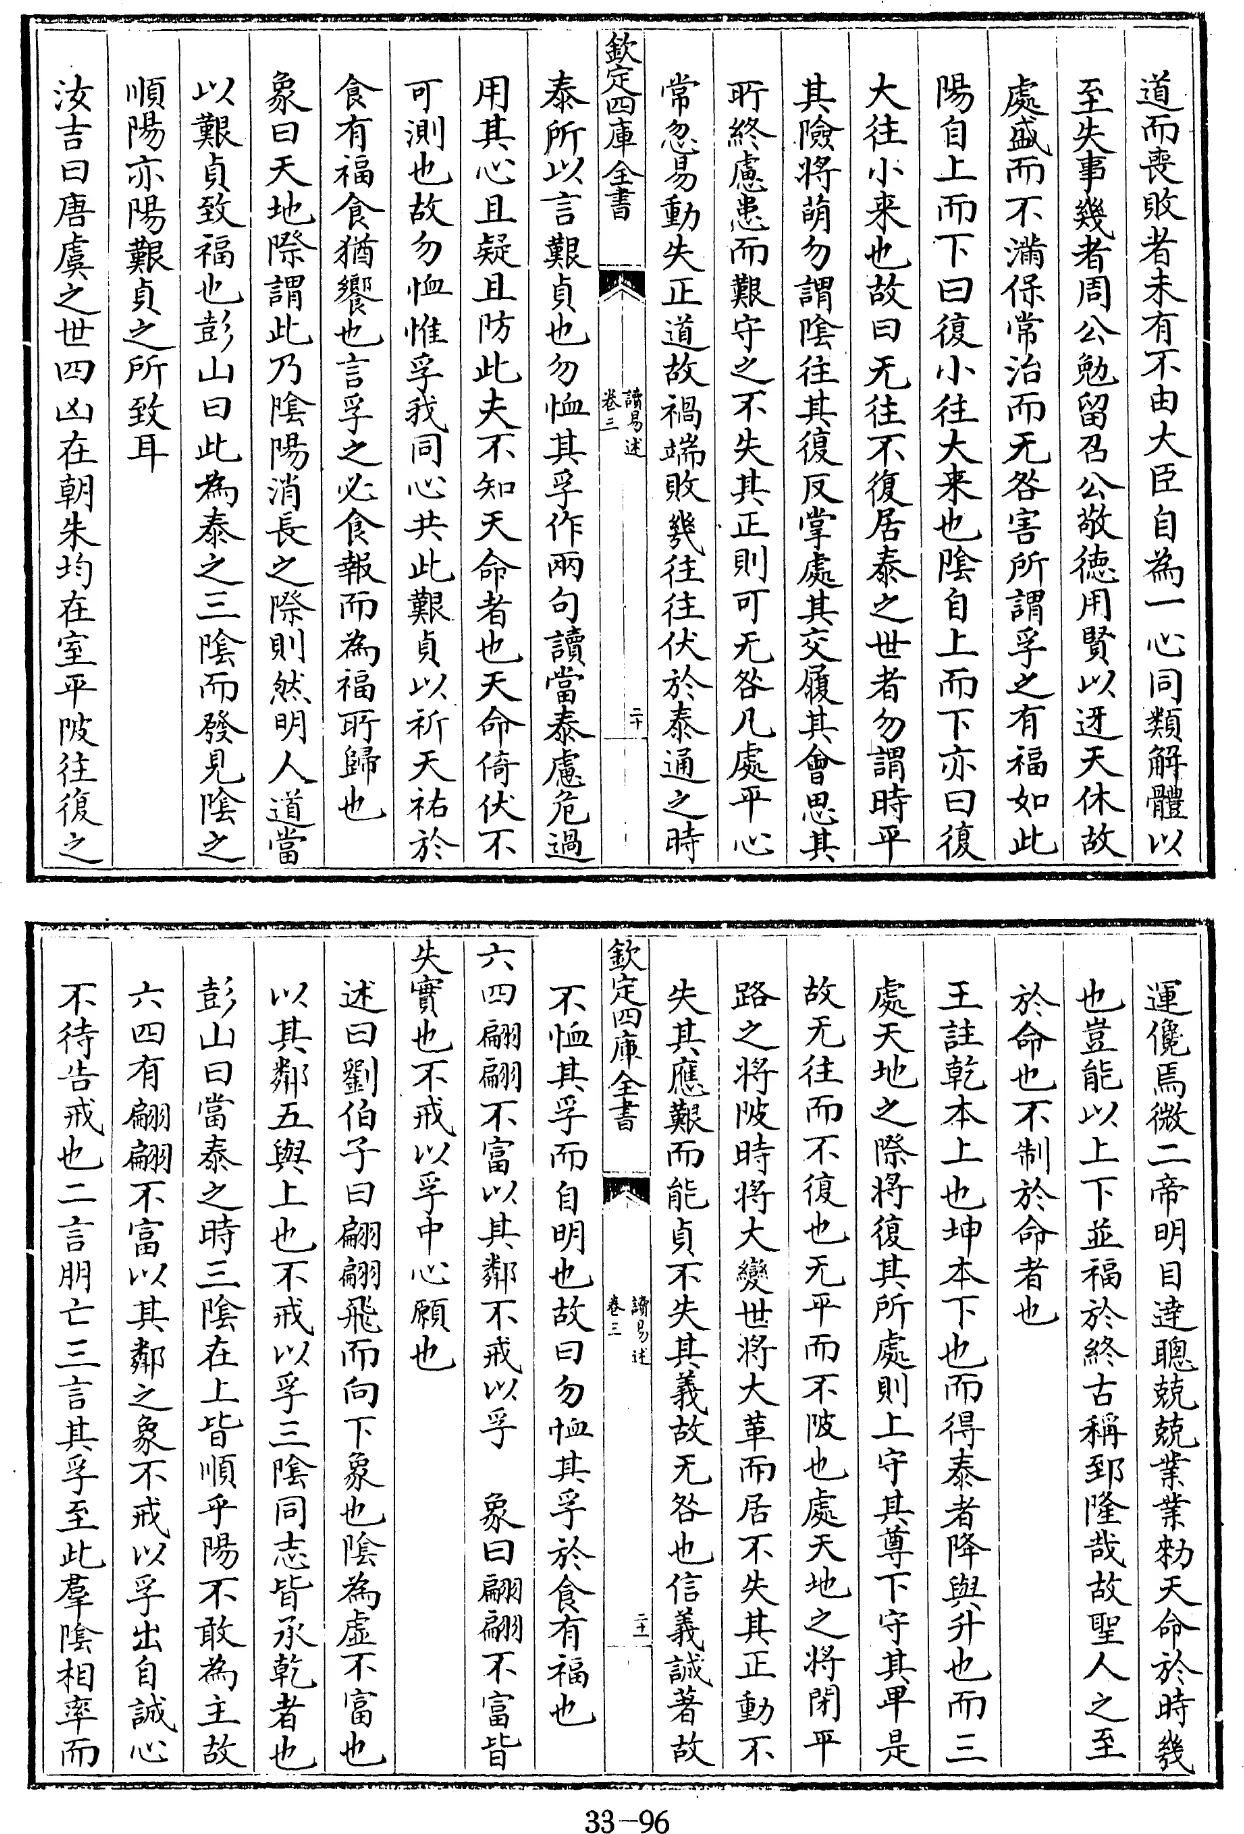 道而喪敗者未有不由大臣自為一心同類解體以
至失事幾者周公勉留召公敬德用賢以迓天休故
處盛而不滿保常治而无咎害所謂孚之有福如此
陽自上而下曰復小往大来也陰自上而下亦曰復
大往小来也故曰无往不復居泰之世者勿謂時平
其險將萌勿謂陰往其復反掌處其交履其會思其
所終慮患而艱守之不失其正則可无咎凡處平心
常忽易動失正道故禍端敗幾往往伏於泰通之時
欽定四庫全書
讀易述
卷三
二十
泰所以言艱貞也勿恤其孚作兩句讀當泰慮危過
用其心且疑且防此夫不知天命者也天命倚伏不
可測也故勿恤惟孚我同心共此艱貞以祈天祐於
食有福食猶饗也言孚之必食報而為福所歸也
象曰天地際謂此乃陰陽消長之際則然明人道當
以艱貞致福也彭山曰此為泰之三陰而發見陰之
順陽亦陽艱貞之所致耳
汝吉曰唐虞之世四凶在朝朱均在室平陂往復之
運儳焉微二帝明目逹聰兢兢業業勑天命於時幾
也豈能以上下並福於終古稱郅隆哉故聖人之至
於命也不制於命者也
王註乾本上也坤本下也而得泰者降與升也而三
處天地之際將復其所處則上守其尊下守其卑是
故无往而不復也无平而不陂也處天地之將閉平
路之將陂時將大變世將大革而居不失其正動不
失其應艱而能貞不失其義故无咎也信義誠著故
欽定四庫全書
讀易述
卷三
二十一
不恤其孚而自明也故曰勿恤其孚於食有福也
六四翩翩不富以其鄰不戒以孚　象曰翩翩不富皆
失實也不戒以孚中心願也
述曰劉伯子曰翩翩飛而向下象也陰為虛不富也
以其鄰五與上也不戒以孚三陰同志皆承乾者也
彭山曰當泰之時三陰在上皆順乎陽不敢為主故
六四有翩翩不富以其鄰之象不戒以孚出自誠心
不待告戒也二言朋亡三言其孚至此羣陰相率而
33-96